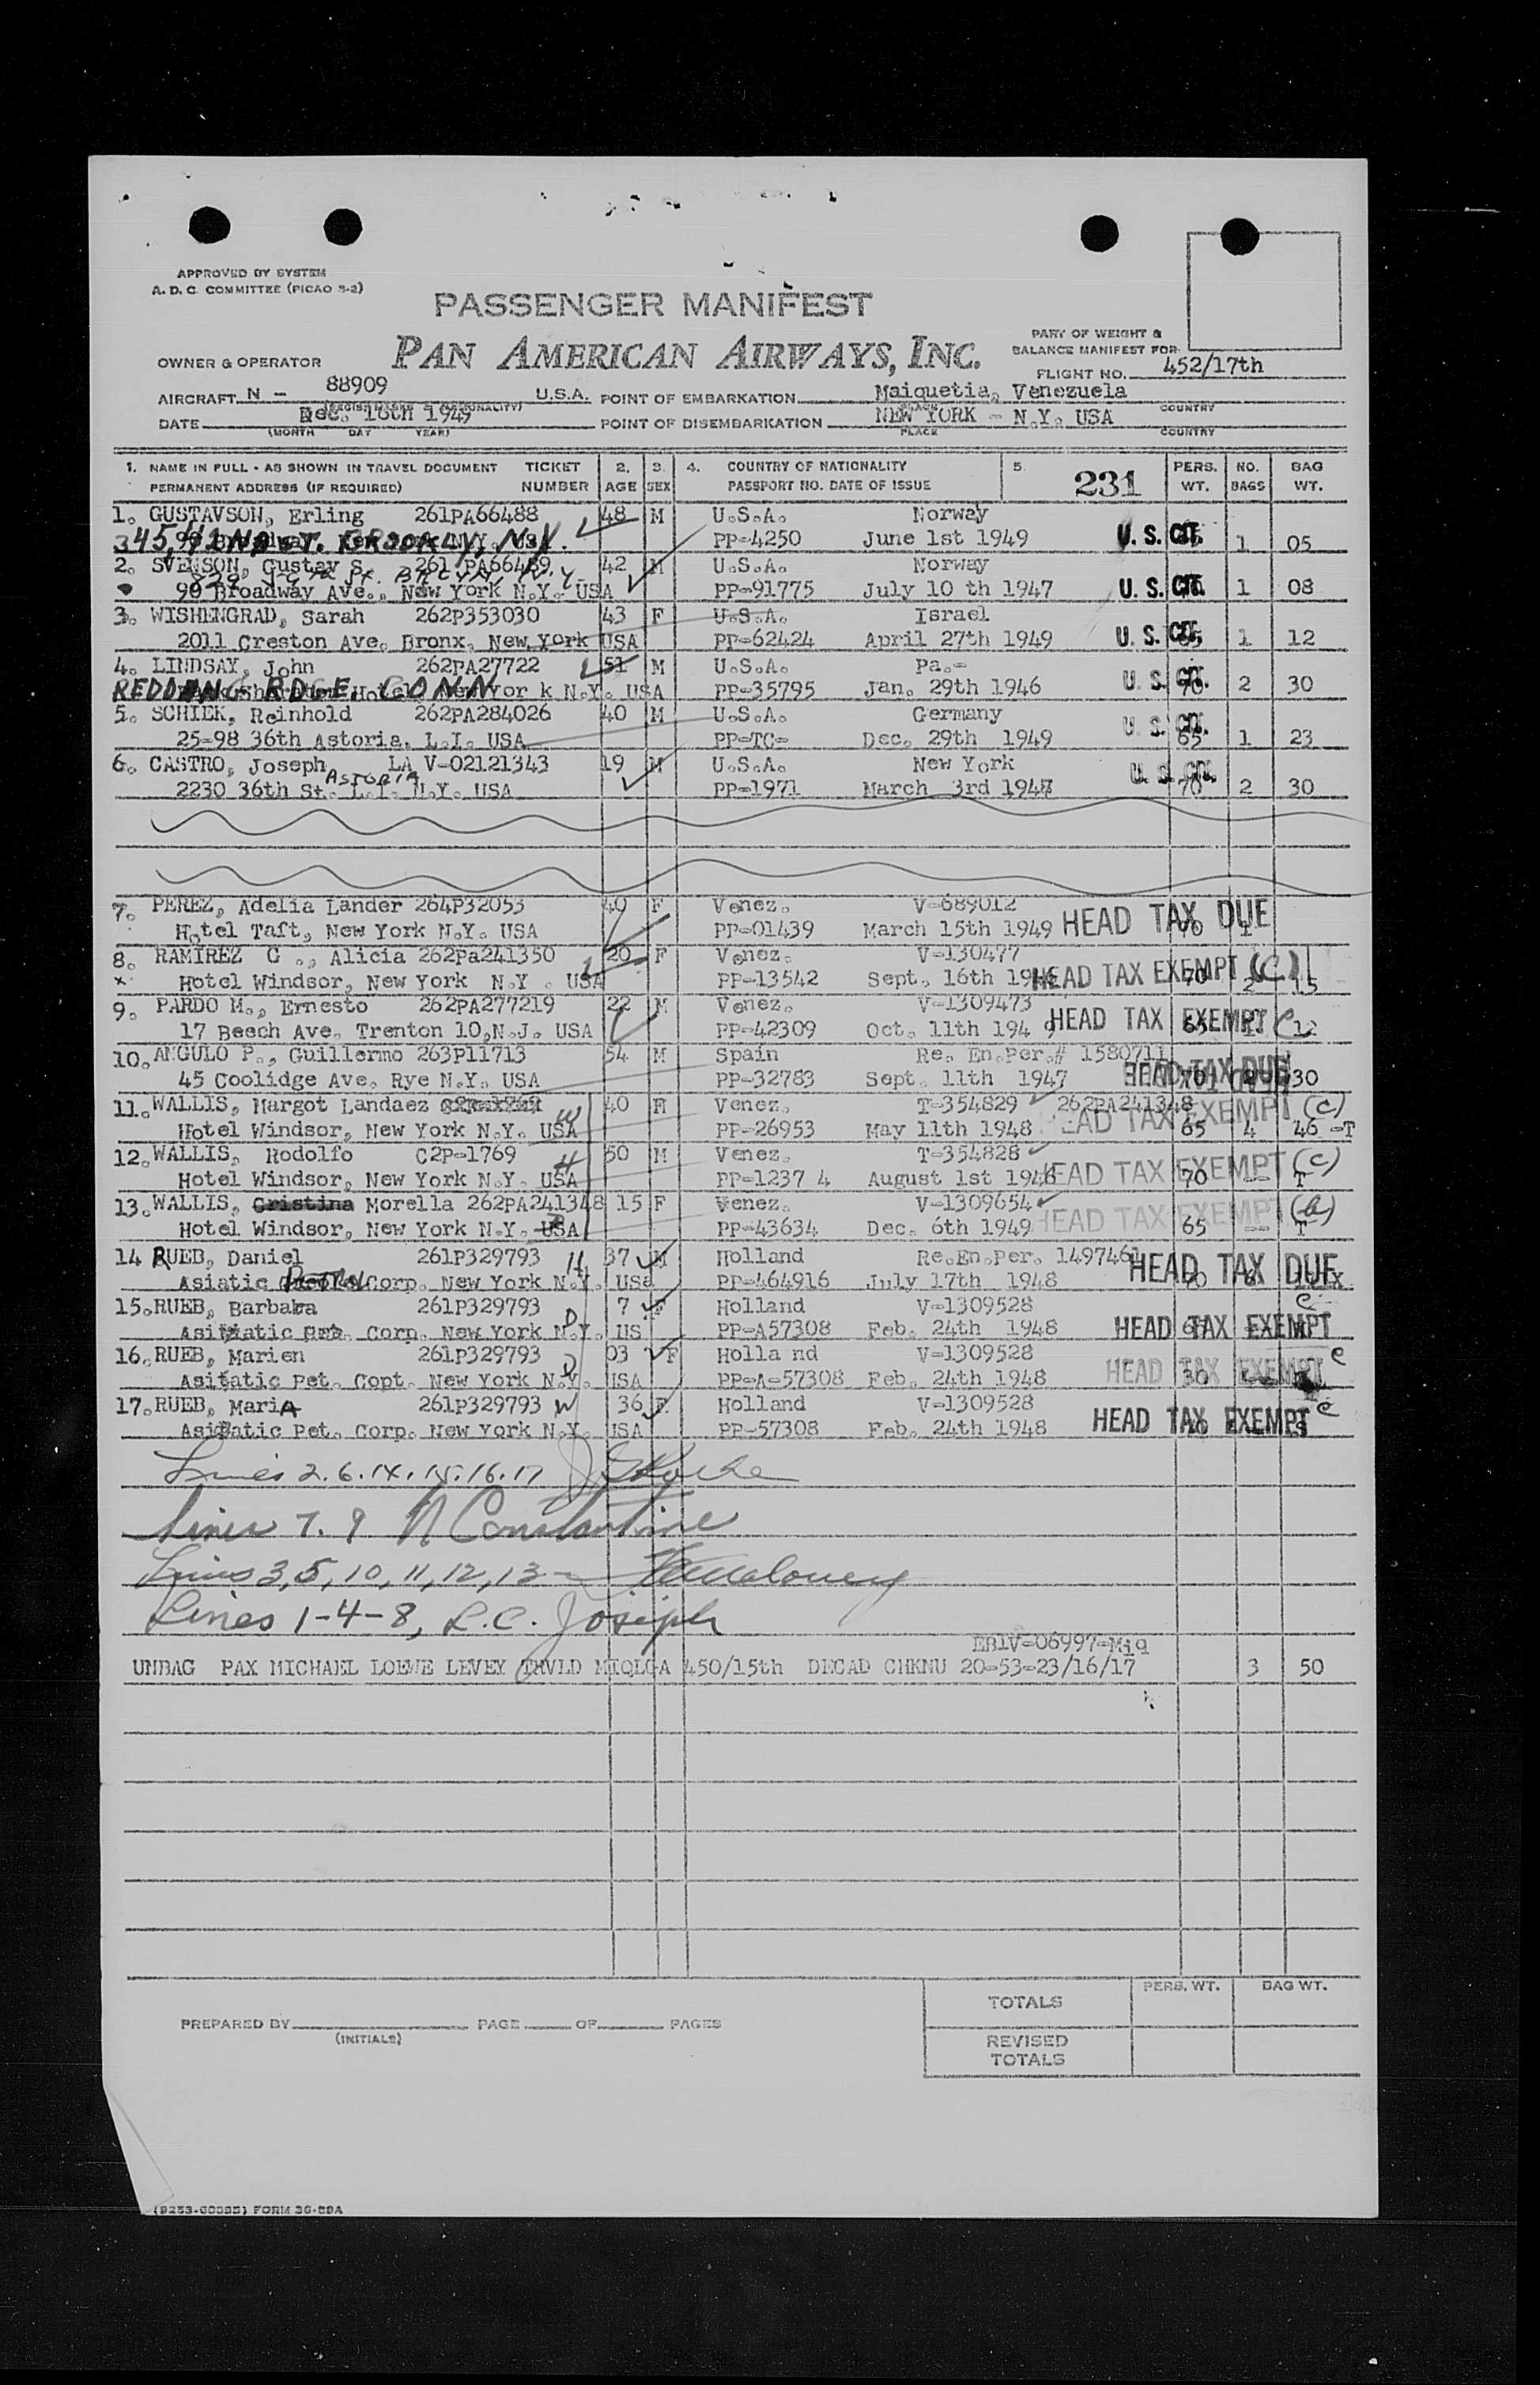 APPROVED BY SYSTEM
A. D. C. COMMITTEE (PICAO S-2)
PASSENGER MANIFEST
PAN AMERICAN AIRWAYS, INC.
PART OF WEIGHT &
BALANCE MANIFEST FOR
FLIGHT NO. 452/17th
OWNER & OPERATOR
AIRCRAFT N - 88909 U.S.A. POINT OF EMBARKATION Maiquetia, Venezuela
COUNTRY
DATE Dec. 16th 1949 POINT OF DISEMBARKATION NEW YORK - N.Y. USA
(MONTH DAY YEAR) PLACE COUNTRY
1. NAME IN FULL - AS SHOWN IN TRAVEL DOCUMENT TICKET 2. 3. 4. COUNTRY OF NATIONALITY 5. 231 PERS. NO. BAG
PERMANENT ADDRESS (IF REQUIRED) NUMBER AGE SEX PASSPORT NO. DATE OF ISSUE WT. BAGS WT.
1. GUSTAVSON, Erling 261PA66488 48 M U.S.A. Norway
PP-4250 June 1st 1949 U. S. CIT. 1 05
2. SVENSON, Gustav S. 261 PA66489 42 M U.S.A. Norway
90 Broadway Ave., New York N.Y. USA PP-91775 July 10 th 1947 U. S. CIT. 1 08
3. WISHENGRAD, Sarah 262P353030 43 F U.S.A. Israel
2011 Creston Ave. Bronx, New York USA PP-62424 April 27th 1949 U. S. CIT. 65 1 12
4. LINDSAY, John 262PA27722 51 M U.S.A. Pa.-
REDDING RDGE. CONN New Yor k N.Y. USA PP-35795 Jan. 29th 1946 U. S. CIT. 70 2 30
5. SCHIEK, Reinhold 262PA284026 40 M U.S.A. Germany
25-98 36th Astoria. L.I. USA PP-TC- Dec. 29th 1949 U. S. CIT. 65 1 23
6. CASTRO, Joseph LA V-02121343 19 M U.S.A. New York
ASTORIA
2230 36th St. L.I. N.Y. USA PP-1971 March 3rd 1947 U. S. CIT. 70 2 30
7. PEREZ, Adelia Lander 264P32053 40 F Venez. V-689012
Hotel Taft, New York N.Y. USA PP-01439 March 15th 1949 HEAD TAX DUE
8. RAMIREZ G ., Alicia 262Pa241350 20 F Venez. V-130477
x Hotel Windsor, New York N.Y . USA PP-13542 Sept. 16th HEAD TAX EXEMPT (C) 70 2 15
9. PARDO M., Ernesto 262PA277219 22 M Venez. V-1309473
17 Beech Ave. Trenton 10,N.J. USA PP-42309 Oct. 11th 194 9 HEAD TAX EXEMPT C 65 12
10. ANGULO P., Guillermo 263P11713 54 M Spain Re. En.Per.# 1580711
45 Coolidge Ave. Rye N.Y. USA PP-32783 Sept. 11th 1947 HEAD TAX DUE 70 2 30
11. WALLIS, Margot Landaez 40 F Venez. T-354829 262PA241348
Hotel Windsor, New York N.Y. USA PP-26953 May 11th 1948 HEAD TAX EXEMPT (C) 65 4 46 -T
12. WALLIS, Rodolfo C2P-1769 50 M Venez. T-354828
Hotel Windsor, New York N.Y. USA PP-1237 4 August 1st 1948 HEAD TAX EXEMPT (C) 70 -- T
13. WALLIS, Cristina Morella 262PA241348 15 F Venez. V-1309654
Hotel Windsor, New York N.Y. USA PP-43634 Dec. 6th 1949 HEAD TAX EXEMPT 65 -- T
14 RUEB, Daniel 261P329793 H 37 M Holland Re.En.Per. 1497461
Asiatic Corp. New York N.Y. USa PP-464916 July 17th 1948 HEAD TAX DUE
15. RUEB, Barbara 261P329793 D 7 F Holland V-1309528
Corp. New York N.Y. US PP-A57308 Feb. 24th 1948 HEAD TAX EXEMPT C
16. RUEB, Marien 261P329793 D 03 F Holla nd V-1309528
Pet. Copt. New York N.Y. USA PP-A-57308 Feb. 24th 1948 HEAD TAX EXEMPT C 30
17. RUEB, MariA 261P329793 W 36 F Holland V-1309528
Pet. Corp. New York N.Y. USA PP-57308 Feb. 24th 1948 HEAD TAX EXEMPT C
Lines 2. 6. 14. 15. 16. 17
Lines 7. 9 N Constantine
Lines 3, 5, 10, 11, 12, 13 -
Lines 1-4-8, L.C. Joseph
EBIV-06997-Miq
UNBAG PAX MICHAEL LOEWE LEVEY TRVLD MIQLGA 450/15th DECAD CHKNU 20-53-23/16/17 3 50
PERS. WT. BAG WT.
TOTALS
PREPARED BY PAGE OF PAGES
(INITIALS)
REVISED
TOTALS
FORM 36-89A